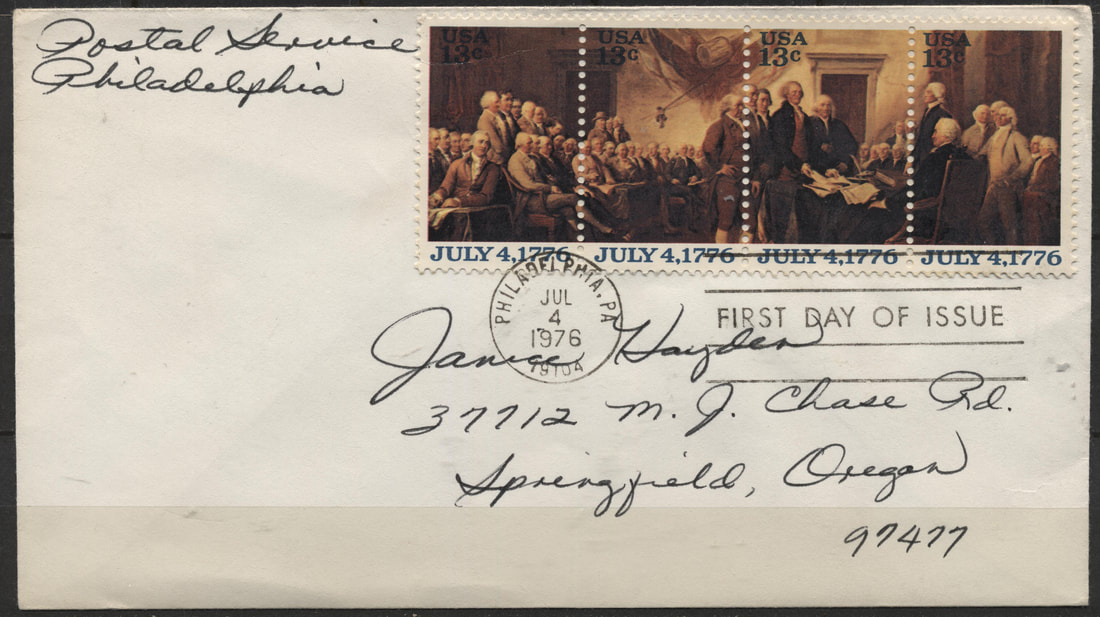 Postal Service
Philadelphia
USA 13c
USA 13c
USA 13c
USA 13c
JULY 4,1776
JULY 4,1776
JULY 4,1776
JULY 4,1776
PHILADELPHIA, PA
JUL
4
1976
19104
FIRST DAY OF ISSUE
Janice Hayden
37712 M. J. Chase Rd.
Springfield, Oregon
97477